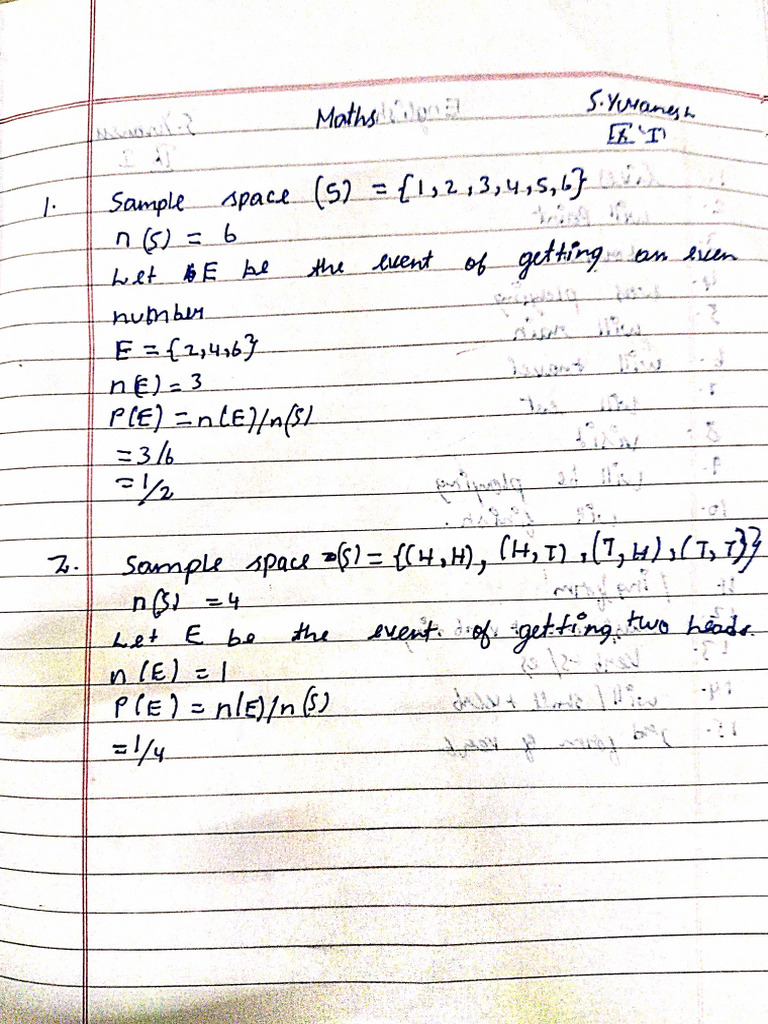 Maths
S.Yuvanesh
IX 'I'
1. Sample space (S) = {1,2,3,4,5,6}
n(S) = 6
Let E be the event of getting an even
number
E = {2,4,6}
n(E) = 3
P(E) = n(E)/n(S)
= 3/6
= 1/2
2. Sample space (S) = {(H,H), (H,T), (T,H), (T,T)}
n(S) = 4
Let E be the event of getting two heads.
n(E) = 1
P(E) = n(E)/n(S)
= 1/4